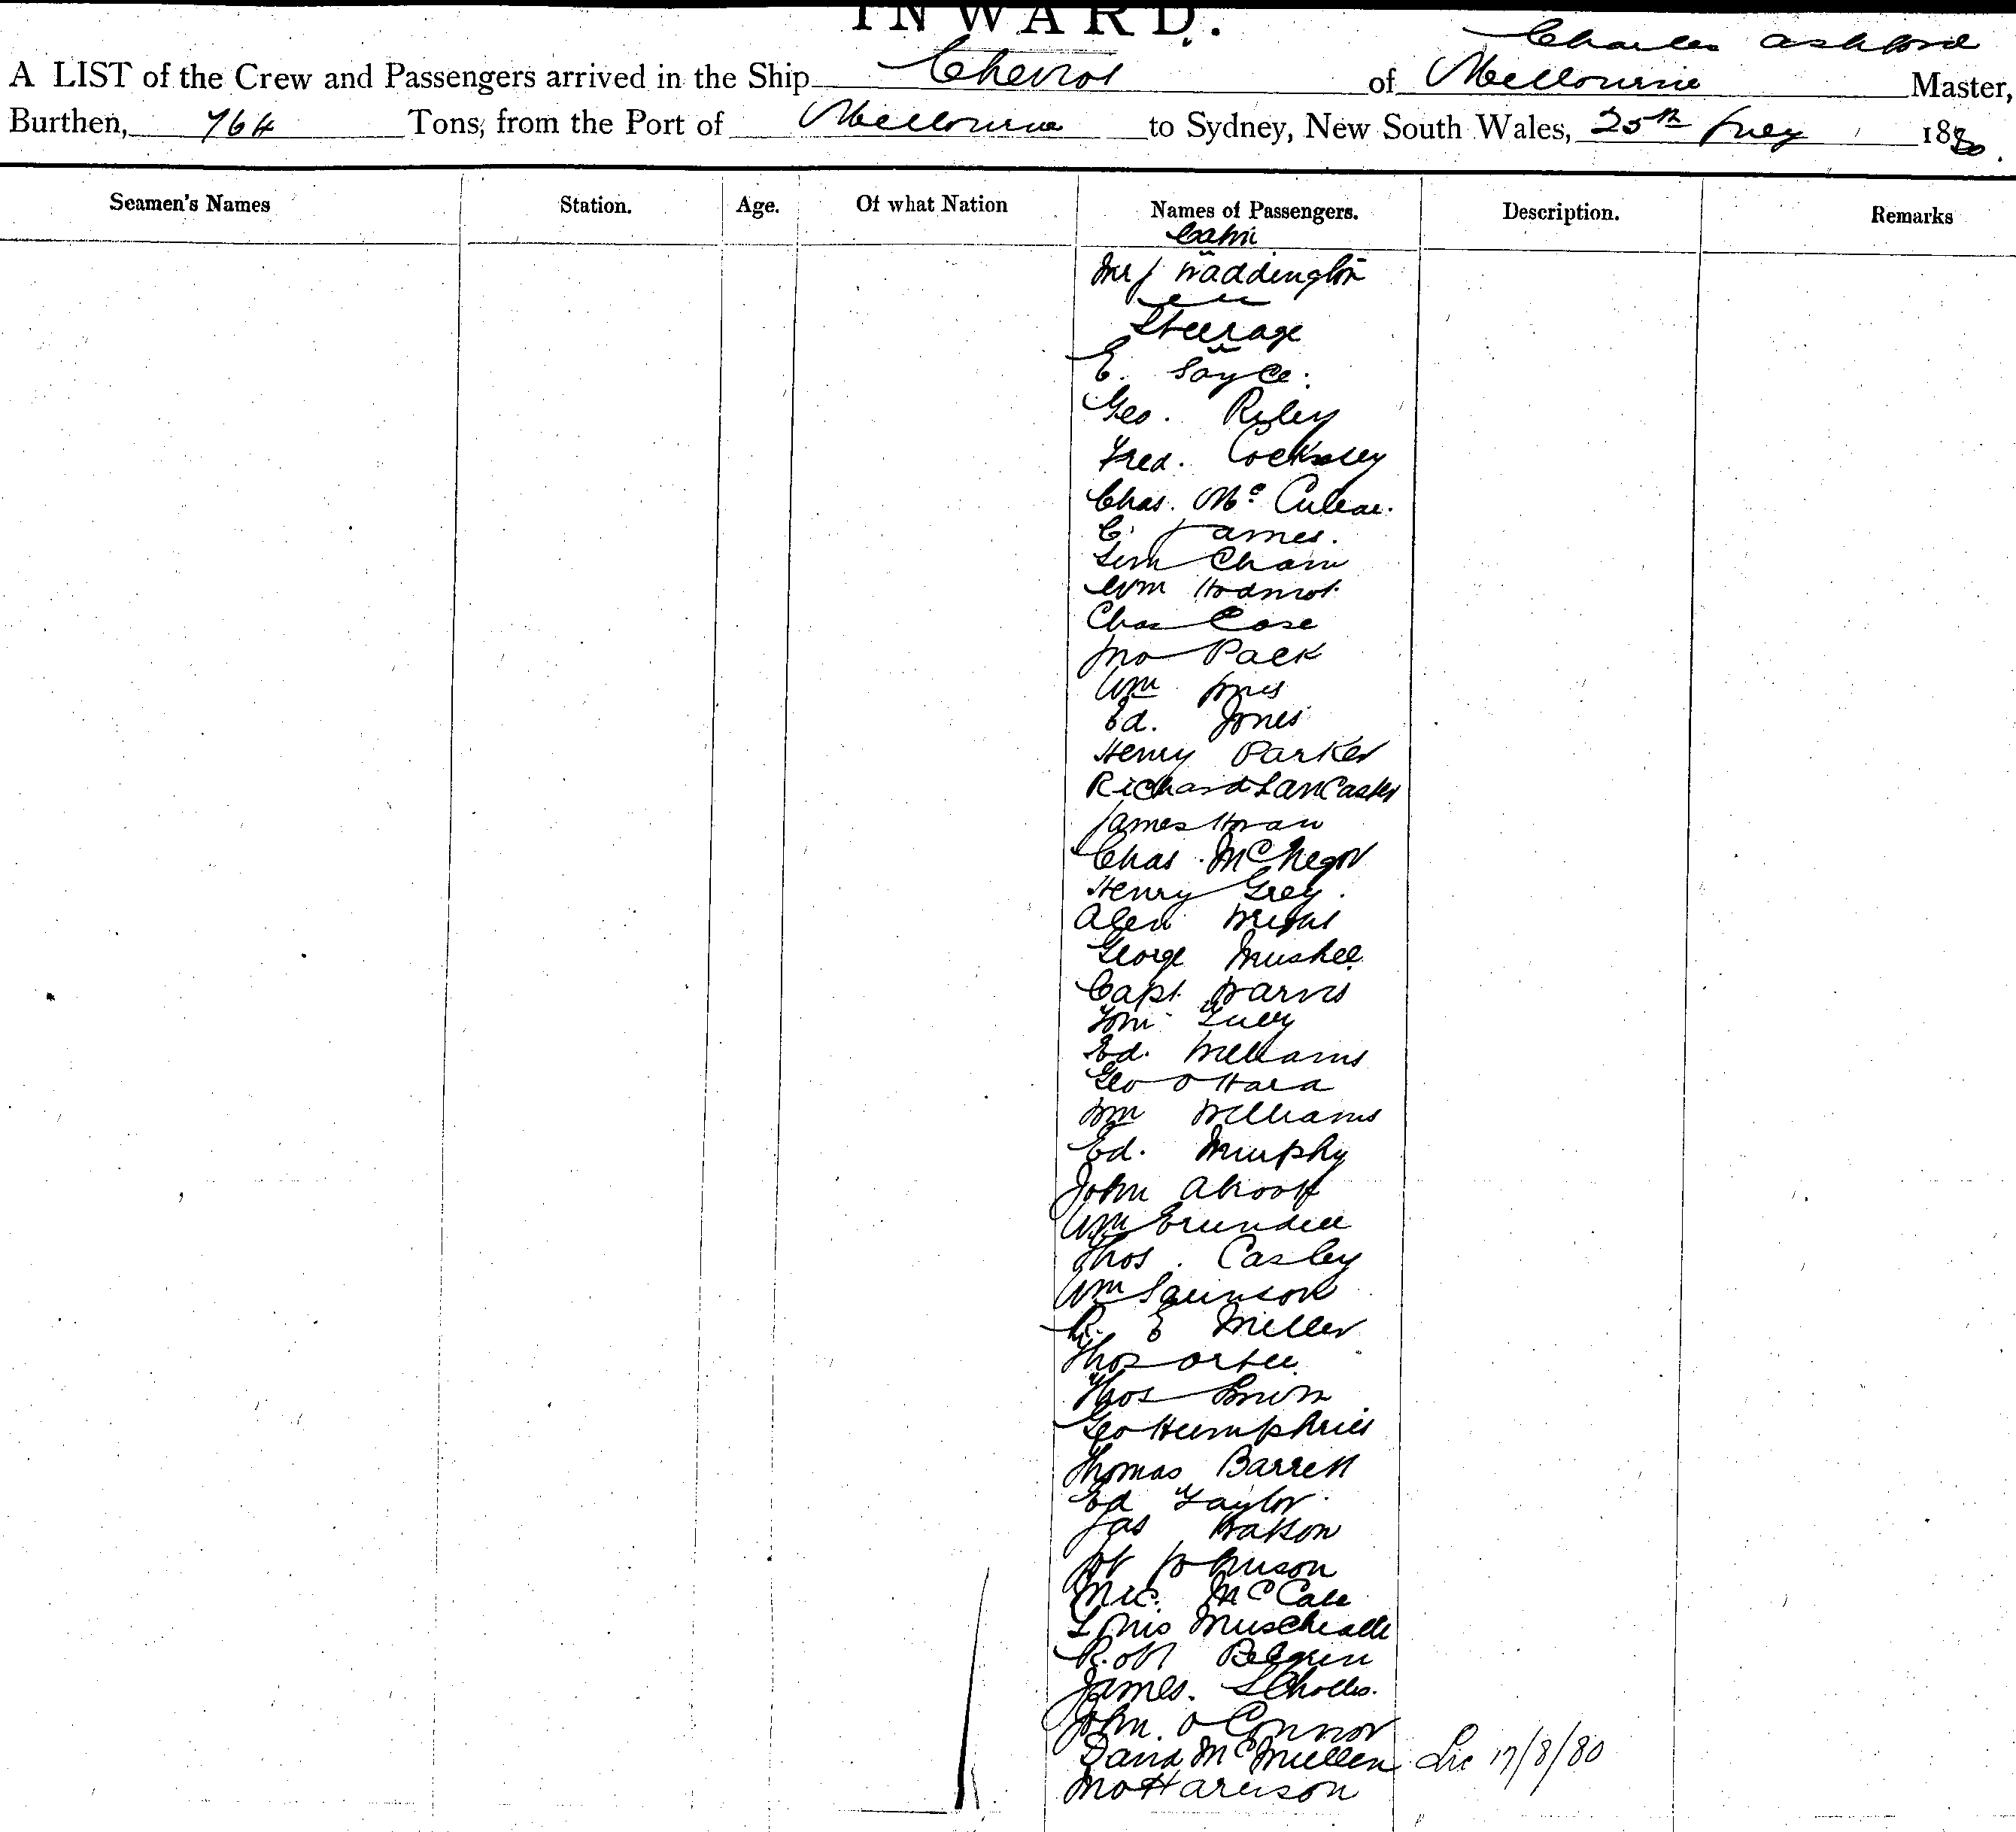 INWARD.
Charles Ashford
A LIST of the Crew and Passengers arrived in the Ship Cheviot of Melbourne Master,
Burthen, 764 Tons, from the Port of Melbourne to Sydney, New South Wales, 25th July 1880.
Seamen's Names Station. Age. Of what Nation Names of Passengers. Description. Remarks
Cabin
Mr J Waddington
Steerage
E. Sayce.
Geo. Riley
Fred. Cocksley
Chas. Mc
C. James.
Sim Cham
Wm
Chas Case
Jno Pack
Wm Jones
Ed. Jones
Henry Parker
Richard Lancaster
James Horan
Chas. McGregor
Henry Grey.
Alex Wright
George
Capt. Jarvis
Tom
Ed. Williams
Geo O Hara
Wm Williams
Ed. Murphy
John
Wm
Thos. Casley
Wm
R. E Miller
Thos
Thos Brown
Geo Humphries
Thomas Barrett
Ed Taylor.
Jas Watson
Johnson
Mic. McCabe
Louis
Robt
James. Scholes.
John. O Connor
David McMullen Lic 17/8/80
Jno Harrison